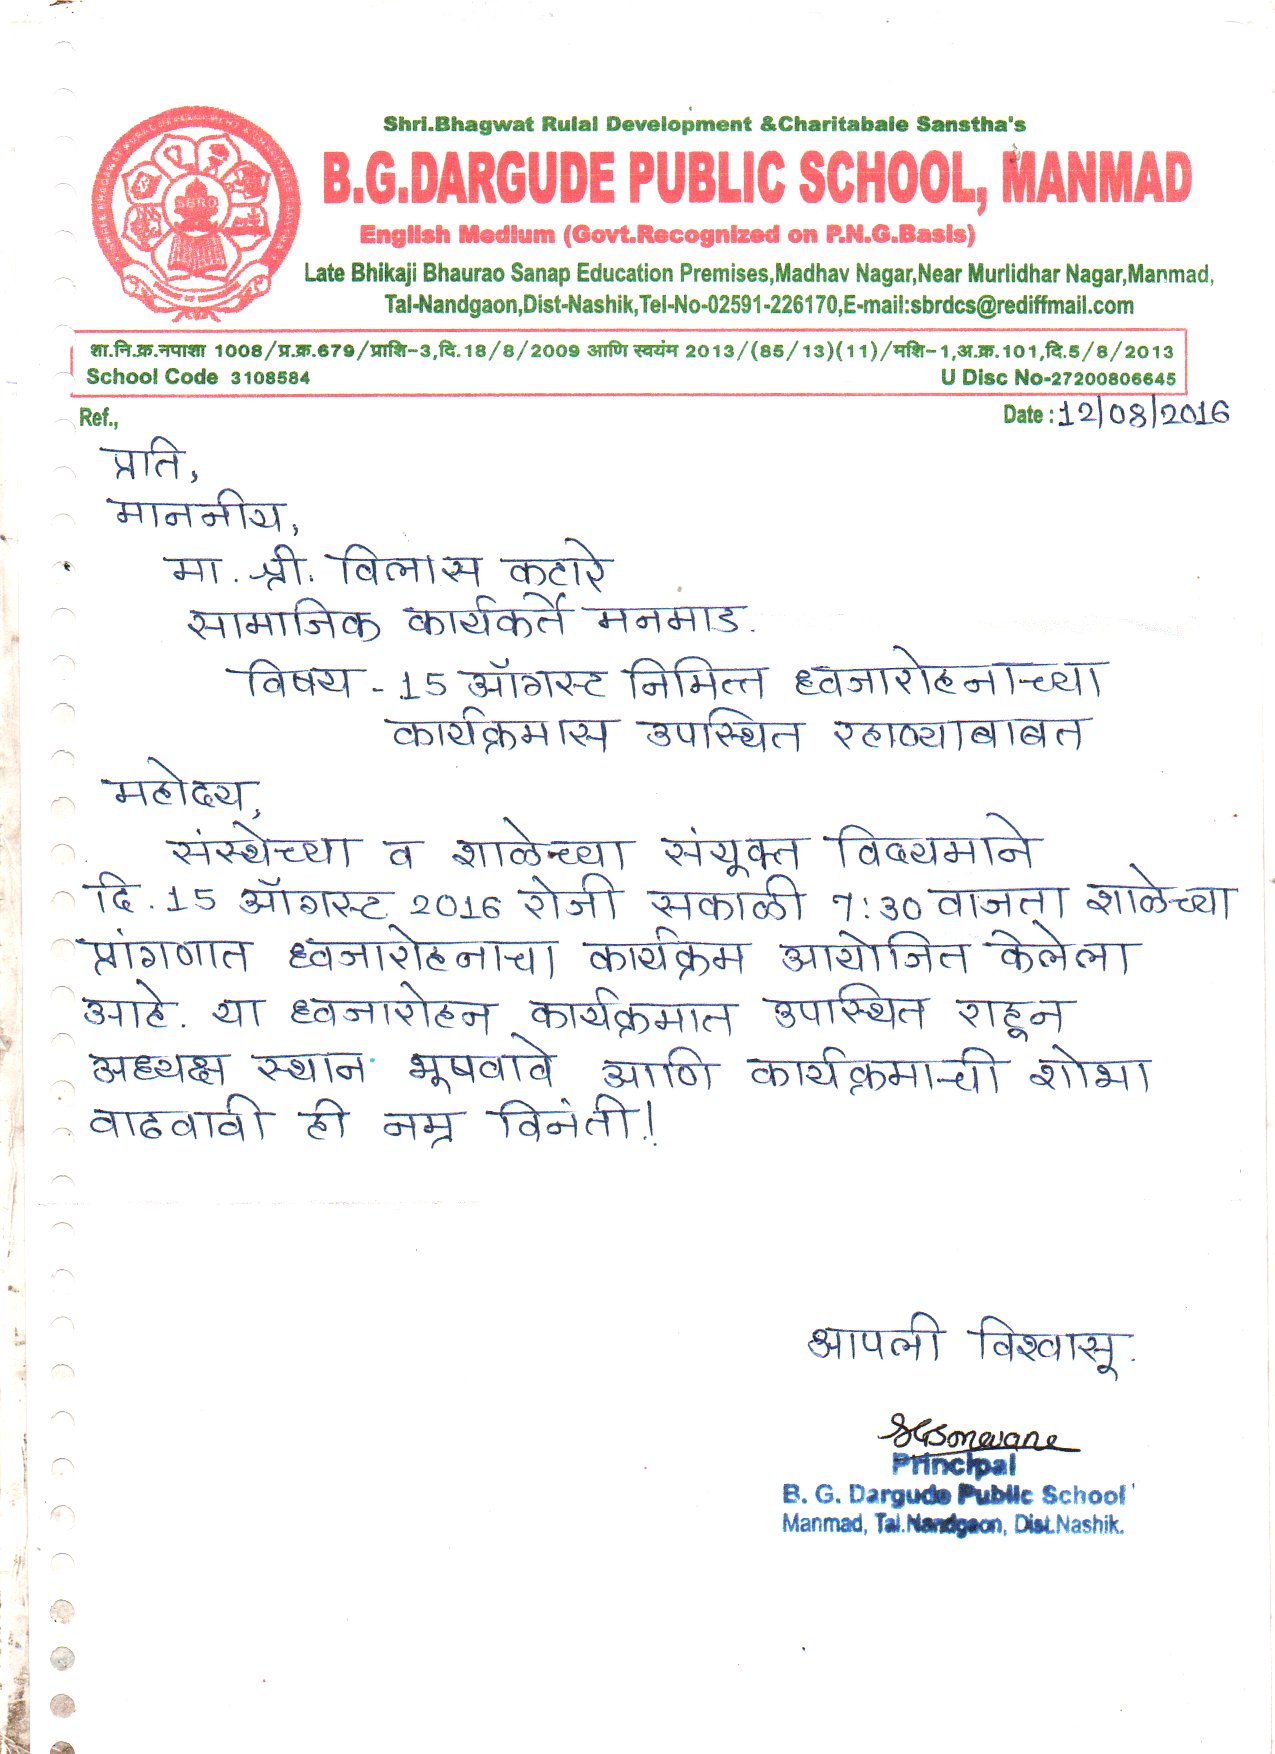 Shri.Bhagwat Rulal Development &Charitabale Sanstha's
B.G.DARGUDE PUBLIC SCHOOL, MANMAD
English Medium (Govt.Recognized on P.N.G.Basis)
Late Bhikaji Bhaurao Sanap Education Premises,Madhav Nagar,Near Murlidhar Nagar,Manmad,
Tal-Nandgaon,Dist-Nashik,Tel-No-02591-226170,E-mail:sbrdcs@rediffmail.com
SBRD
शा.नि.क्र.नपाशा 1008/प्र.क्र.679/प्राशि-3,दि.18/8/2009 आणि स्वयंम 2013/(85/13)(11)/मशि-1,अ.क्र.101,दि.5/8/2013
School Code 3108584 U Disc No-27200806645
Ref., Date : 12/08/2016
प्रति,
माननीय,
मा. श्री. विलास कटारे
सामाजिक कार्यकर्ते मनमाड.
विषय - 15 ऑगस्ट निमित्त ध्वजारोहनाच्या
कार्यक्रमास उपस्थित रहाण्याबाबत
महोदय,
संस्थेच्या व शाळेच्या संयूक्त विद्यमाने
दि. 15 ऑगस्ट 2016 रोजी सकाळी 7:30 वाजता शाळेच्या
प्रांगणात ध्वजारोहनाचा कार्यक्रम आयोजित केलेला
आहे. या ध्वजारोहन कार्यक्रमात उपस्थित राहून
अध्यक्ष स्थान भूषवावे आणि कार्यक्रमाची शोभा
वाढवावी ही नम्र विनंती!
आपली विश्वासू.
SGSonewane
Principal
B. G. Dargude Public School
Manmad, Tal.Nandgaon, Dist.Nashik.